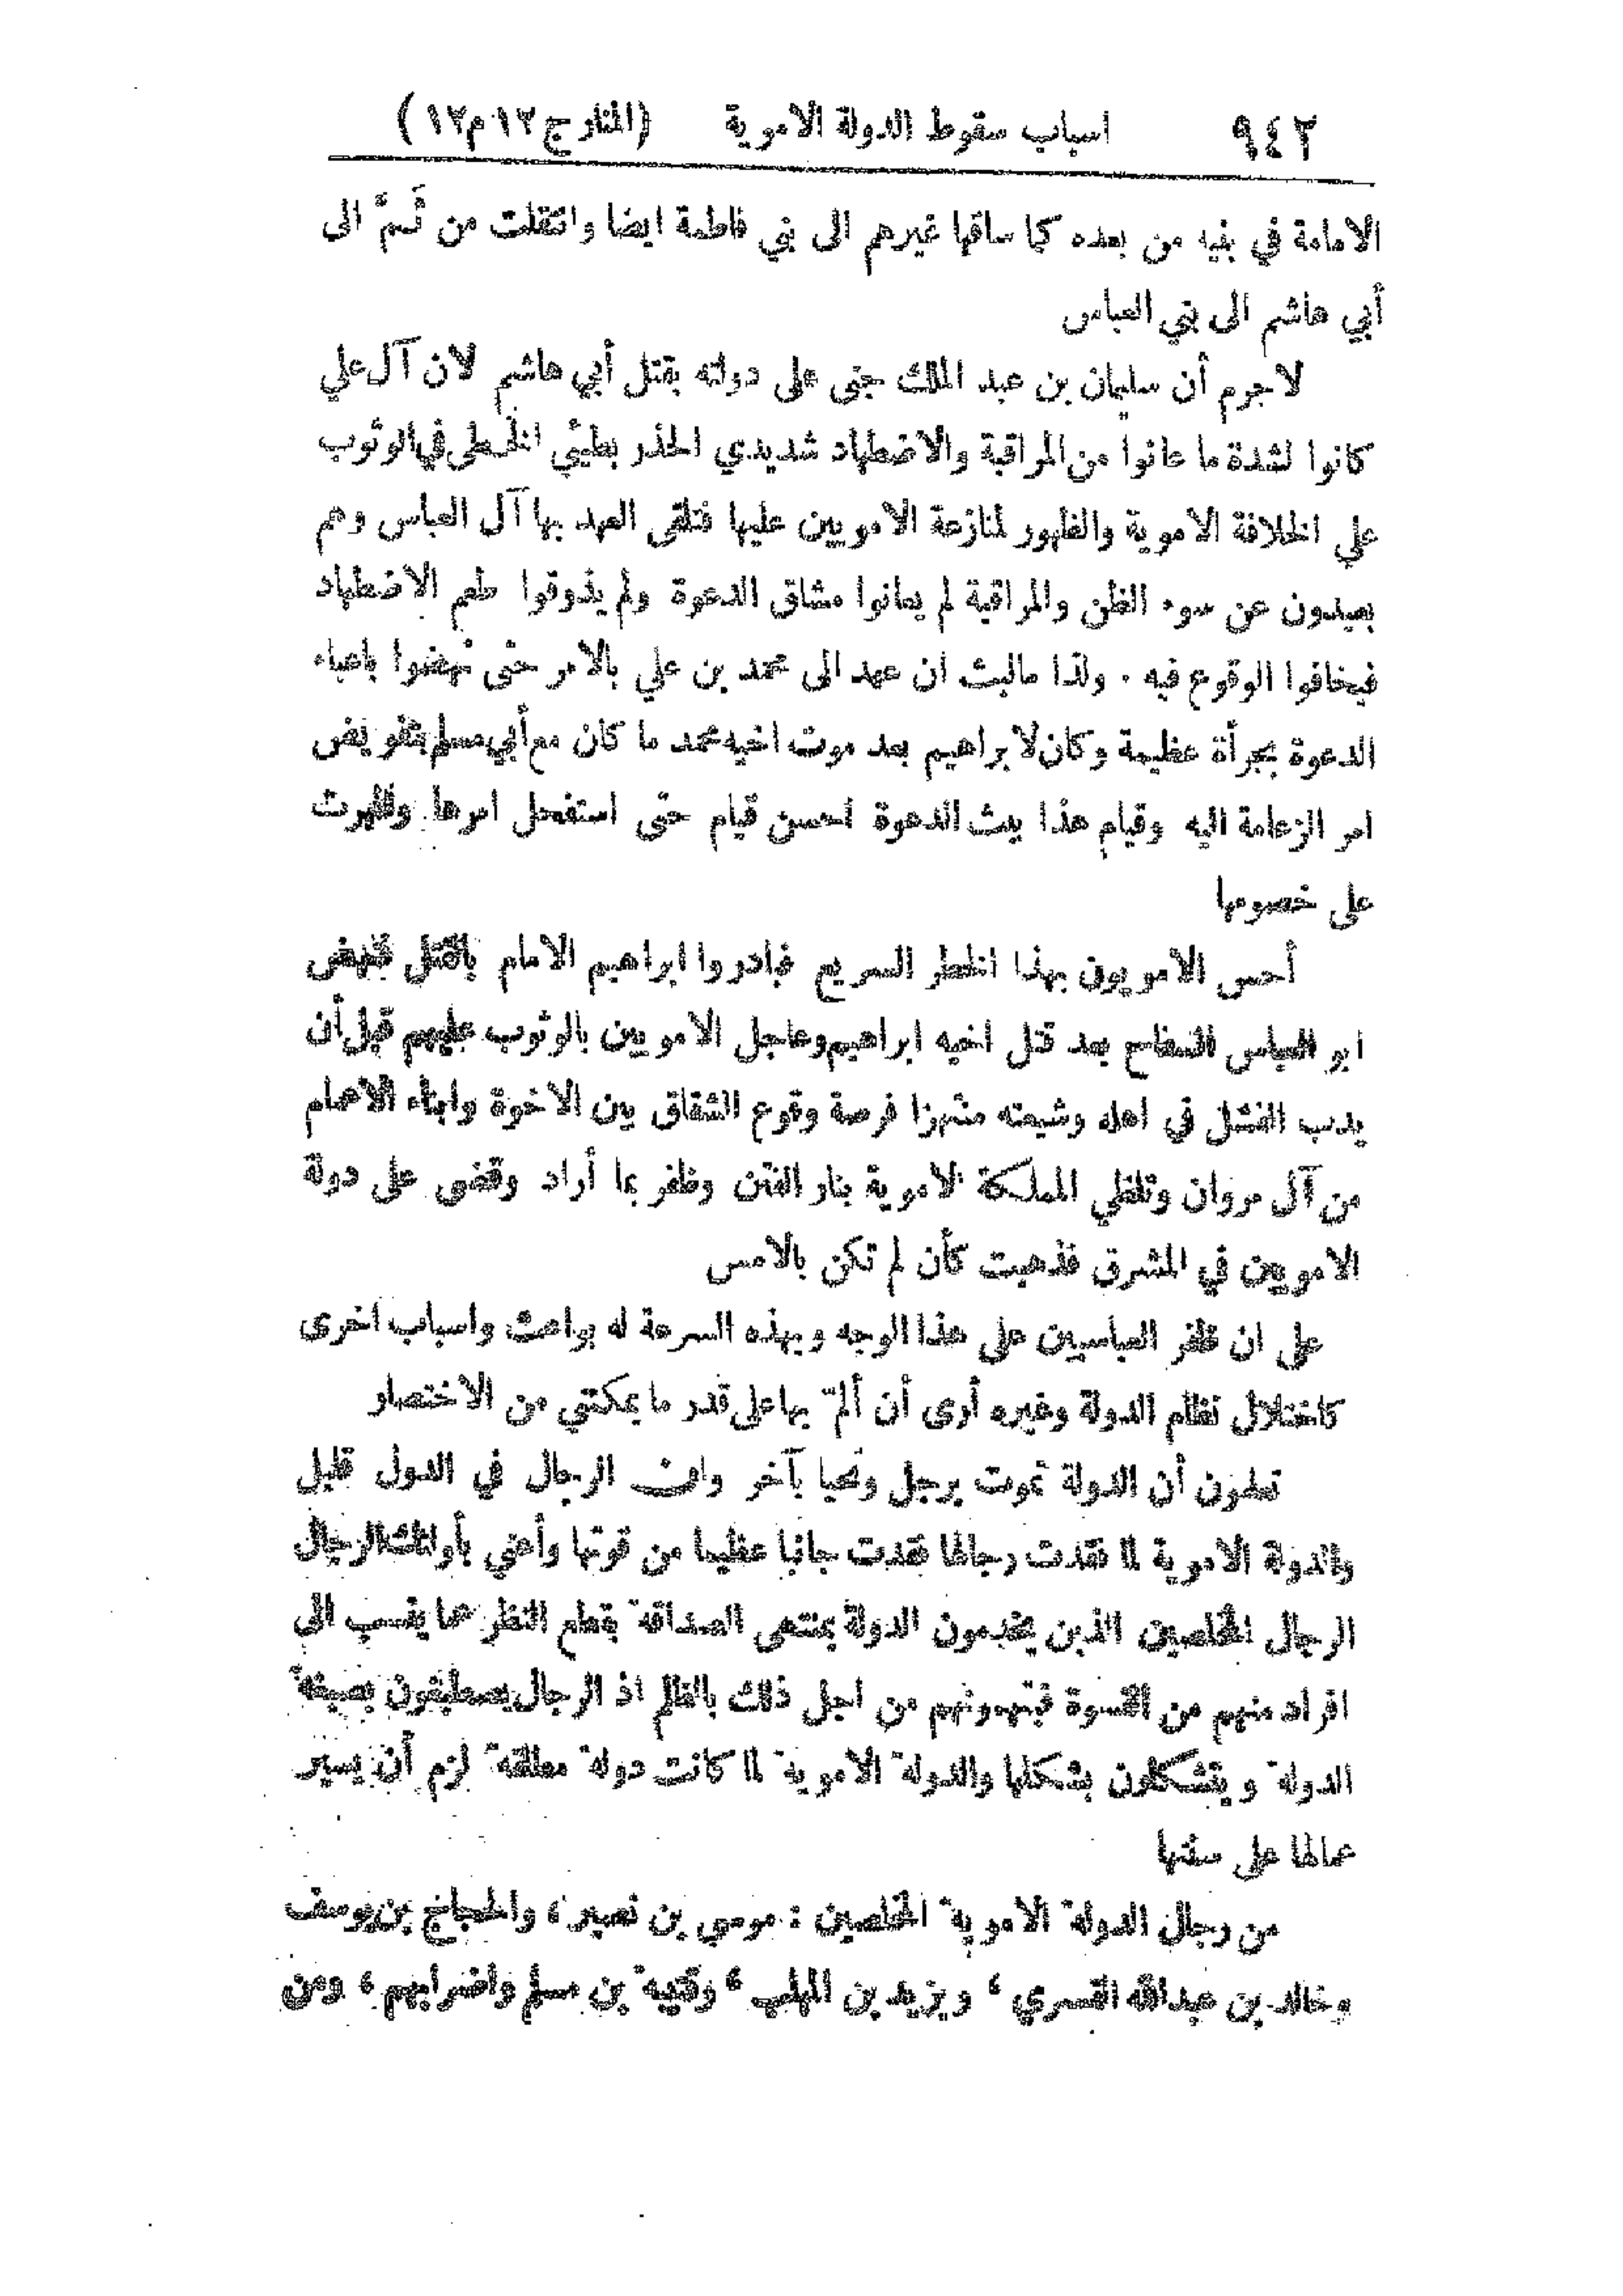 ٩٤٢ اسباب سقوط الدولة الاموية (المنار ج ١٢ م ١٢)
الامامة في بنيه من بعده كما ساقها غيرهم الى بني فاطمة ايضا وانتقلت من ثَمَّ الى
أبي هاشم الى بني العباس
لا جرم أن سليمان بن عبد الملك جنى على دولته بقتل أبي هاشم لان آل علي
كانوا لشدة ما عانوا من المراقبة والاضطهاد شديدي الحذر بطيئي الخطى في الوثوب
على الخلافة الاموية والظهور لمنازعة الامويين عليها فتلقى العهد بها آل العباس وهم
بعيدون عن سوء الظن والمراقبة لم يعانوا مشاق الدعوة ولم يذوقوا طعم الاضطهاد
فيخافوا الوقوع فيه . ولذا مالبث ان عهد الى محمد بن علي بالامر حتى نهضوا باعباء
الدعوة بجرأة عظيمة وكان لابراهيم بعد موت اخيه محمد ما كان مع أبي مسلم بتفويض
امر الزعامة اليه وقيام هذا ببث الدعوة احسن قيام حتى استفحل امرها وظهرت
على خصومها
أحس الامويون بهذا الخطر السريع فبادروا ابراهيم الامام بالقتل فنهض
ابو العباس السفاح بعد قتل اخيه ابراهيم وعاجل الامويين بالوثوب عليهم قبل أن
يدب الفشل في اهله وشيعته منتهزا فرصة وقوع الشقاق بين الاخوة وابناء الاعمام
من آل مروان وتلظي المملكة الاموية بنار الفتن وظفر بما أراد وقضى على دولة
الامويين في المشرق فذهبت كأن لم تكن بالامس
على ان ظفر العباسيين على هذا الوجه وبهذه السرعة له بواعث واسباب اخرى
كاختلال نظام الدولة وغيره أرى أن ألمّ بها على قدر ما يمكنني من الاختصار
تعلمون أن الدولة تموت برجل وتحيا بآخر وان الرجال في الدول قليل
والدولة الاموية لما فقدت رجالها فقدت جانبا عظيما من قوتها وأعني بأولئك الرجال
الرجال المخلصين الذين يخدمون الدولة بمنتهى الصداقة بقطع النظر عما ينسب الى
افراد منهم من القسوة فيتهمونهم من اجل ذلك بالظلم اذ الرجال يصطبغون بصبغة
الدولة ويتشكلون بشكلها والدولة الاموية لما كانت دولة مطلقة لزم أن يسير
عمالها على سنتها
من رجال الدولة الاموية المخلصين : موسي بن نصير ، والحجاج بن يوسف
وخالد بن عبدالله القسري ، ويزيد بن المهلب ، وقتيبة بن مسلم واضرابهم ، ومن